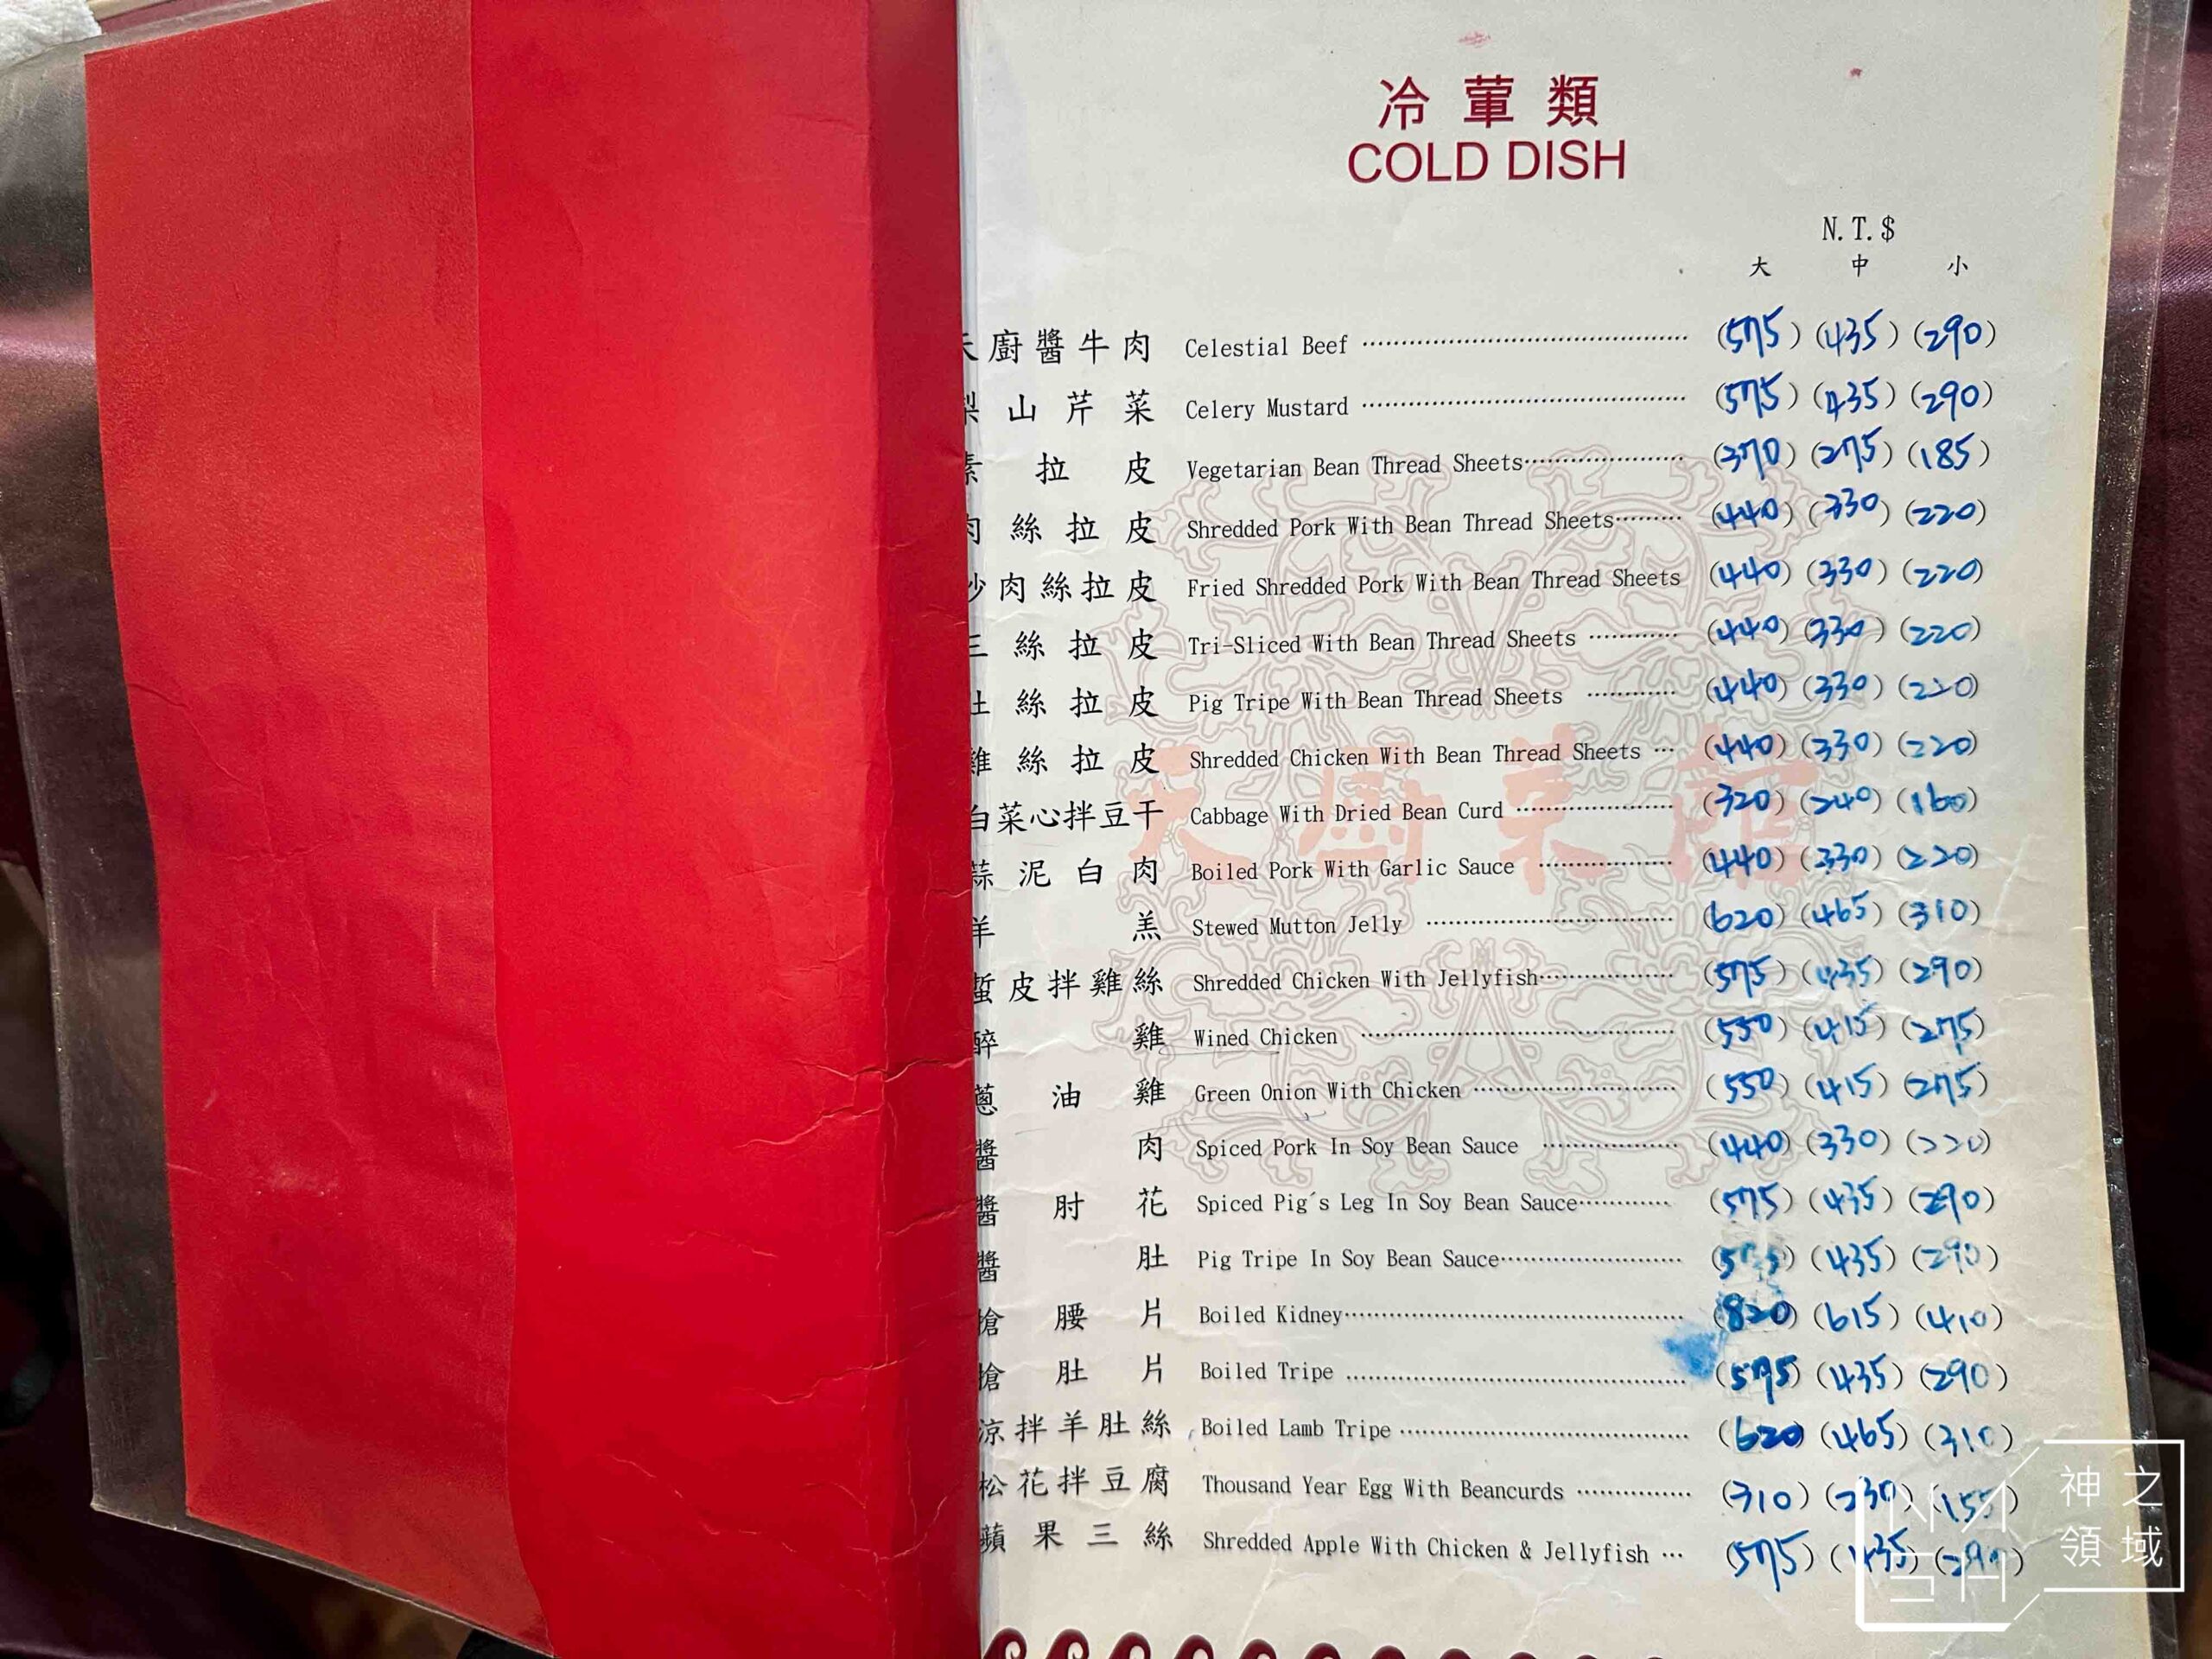 冷葷類
COLD DISH
N.T.$
大 中 小
天廚醬牛肉 Celestial Beef (575) (435) (290)
梨山芹菜 Celery Mustard (575) (435) (290)
素拉皮 Vegetarian Bean Thread Sheets (370) (275) (185)
肉絲拉皮 Shredded Pork With Bean Thread Sheets (440) (330) (220)
炒肉絲拉皮 Fried Shredded Pork With Bean Thread Sheets (440) (330) (220)
三絲拉皮 Tri-Sliced With Bean Thread Sheets (440) (330) (220)
肚絲拉皮 Pig Tripe With Bean Thread Sheets (440) (330) (220)
雞絲拉皮 Shredded Chicken With Bean Thread Sheets (440) (330) (220)
白菜心拌豆干 Cabbage With Dried Bean Curd (320) (240) (160)
蒜泥白肉 Boiled Pork With Garlic Sauce (440) (330) (220)
羊羔 Stewed Mutton Jelly (620) (465) (310)
蜇皮拌雞絲 Shredded Chicken With Jellyfish (575) (435) (290)
醉雞 Wined Chicken (550) (415) (275)
蔥油雞 Green Onion With Chicken (550) (415) (275)
醬肉 Spiced Pork In Soy Bean Sauce (440) (330) (220)
醬肘花 Spiced Pig´s Leg In Soy Bean Sauce (575) (435) (290)
醬肚 Pig Tripe In Soy Bean Sauce (575) (435) (290)
搶腰片 Boiled Kidney (820) (615) (410)
搶肚片 Boiled Tripe (575) (435) (290)
涼拌羊肚絲 Boiled Lamb Tripe (620) (465) (310)
松花拌豆腐 Thousand Year Egg With Beancurds (310) (230) (155)
蘋果三絲 Shredded Apple With Chicken & Jellyfish (575) (435) (290)
天廚菜館
神之
領域